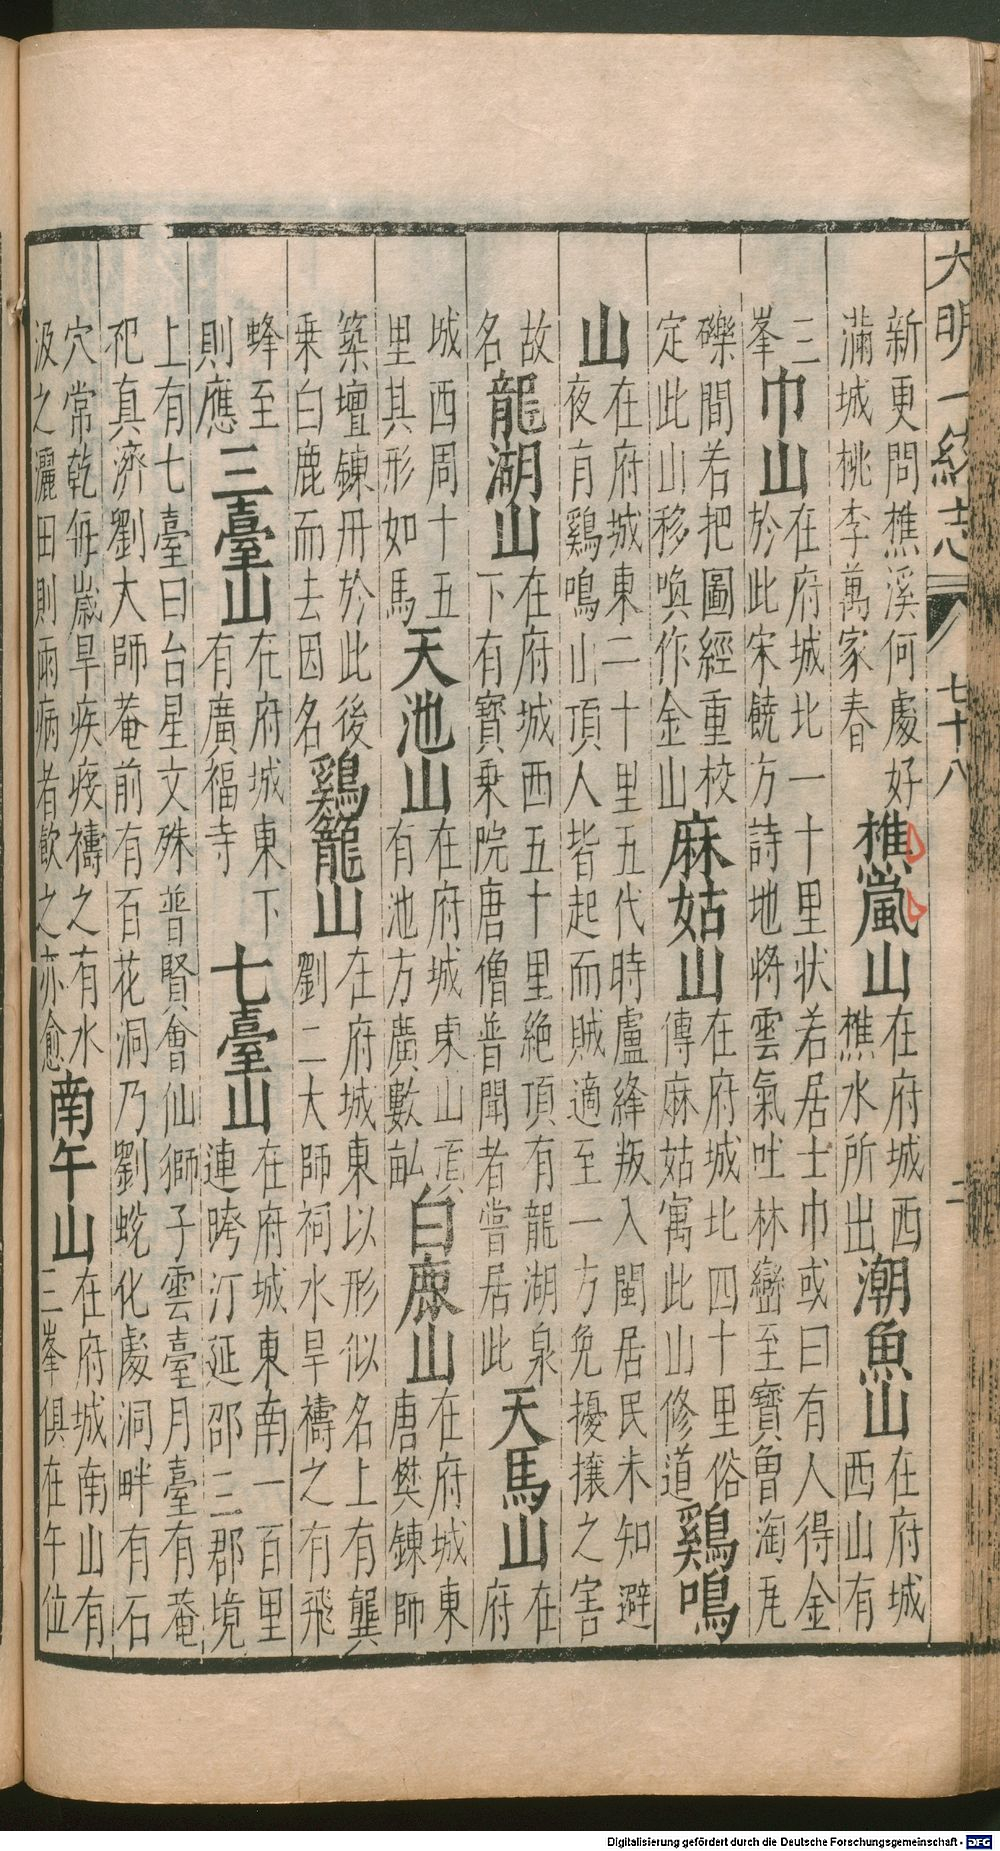 大明一統志 七十八 二
新更問樵溪何處好
滿城桃李萬家春
樵嵐山
在府城西
樵水所出
潮魚山
在府城
西山有
三
峯
巾山
在府城北一十里狀若居士巾或曰有人得金
於此宋饒方詩地將雲氣吐林巒至寶曾淘瓦
礫間若把圖經重校
定此山移喚作金山
麻姑山
在府城北四十里俗
傳麻姑寓此山修道
鷄鳴
山
在府城東二十里五代時盧絳叛入閩居民未知避
夜有鷄鳴山頂人皆起而賊適至一方免擾攘之害
故
名
龍湖山
在府城西五十里絶頂有龍湖泉
下有寶乗院唐僧普聞者嘗居此
天馬山
在
府
城西周十五
里其形如馬
天池山
在府城東山頂
有池方廣數畝
白鹿山
在府城東
唐樊鍊師
築壇鍊丹於此後
乗白鹿而去因名
鷄籠山
在府城東以形似名上有龔
劉二大師祠水旱禱之有飛
蜂至
則應
三臺山
在府城東下
有廣福寺
七臺山
在府城東南一百里
連跨汀延邵三郡境
上有七臺曰台星文殊普賢會仙獅子雲臺月臺有菴
祀真濟劉大師菴前有百花洞乃劉蛻化處洞畔有石
穴常乾每歲旱疾疫禱之有水
汲之灑田則雨病者飲之亦愈
南午山
在府城南山有
三峯俱在午位
Digitalisierung gefördert durch die Deutsche Forschungsgemeinschaft - DFG